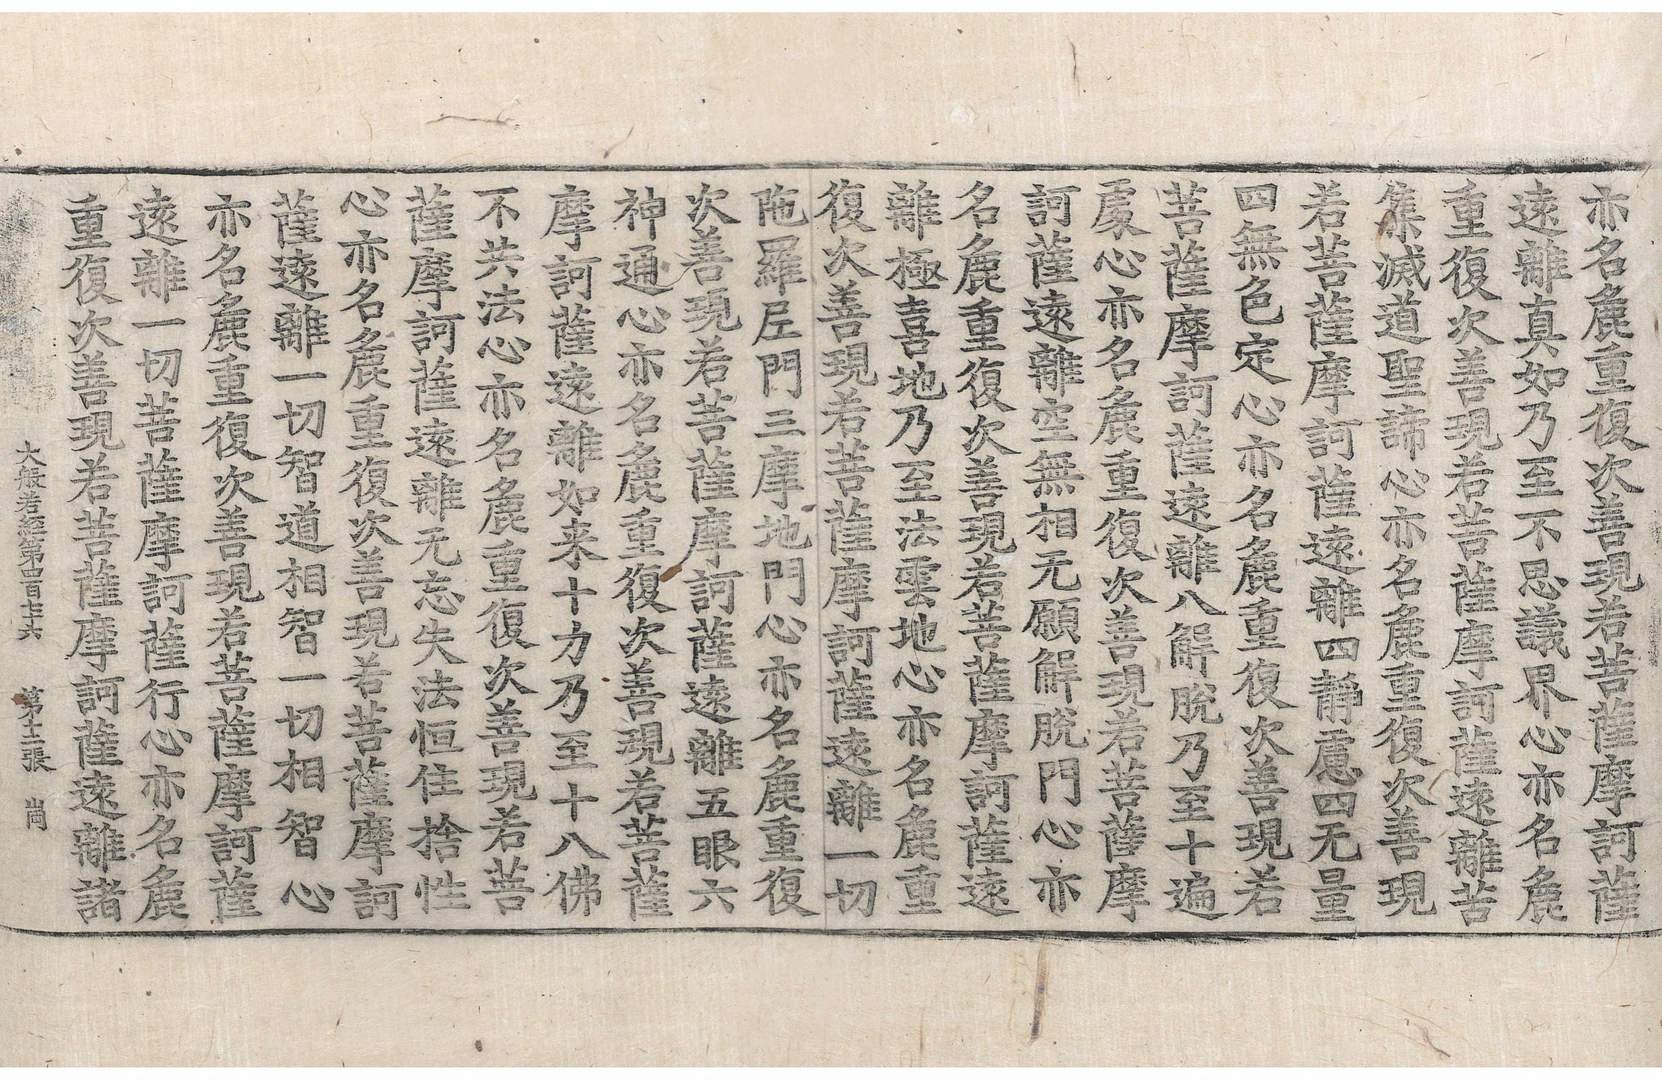 亦名麁重復次善現若菩薩摩訶薩
遠離真如乃至不思議界心亦名麁
重復次善現若菩薩摩訶薩遠離苦
集滅道聖諦心亦名麁重復次善現
若菩薩摩訶薩遠離四靜慮四无量
四無色定心亦名麁重復次善現若
菩薩摩訶薩遠離八解脫乃至十遍
處心亦名麁重復次善現若菩薩摩
訶薩遠離空無相无願解脫門心亦
名麁重復次善現若菩薩摩訶薩遠
離極喜地乃至法雲地心亦名麁重
復次善現若菩薩摩訶薩遠離一切
陁羅尼門三摩地門心亦名麁重復
次善現若菩薩摩訶薩遠離五眼六
神通心亦名麁重復次善現若菩薩
摩訶薩遠離如来十力乃至十八佛
不共法心亦名麁重復次善現若菩
薩摩訶薩遠離无忘失法恒住捨性
心亦名麁重復次善現若菩薩摩訶
薩遠離一切智道相智一切相智心
亦名麁重復次善現若菩薩摩訶薩
遠離一切菩薩摩訶薩行心亦名麁
重復次善現若菩薩摩訶薩遠離諸
大般若經第四百七十六 第十二張 崗